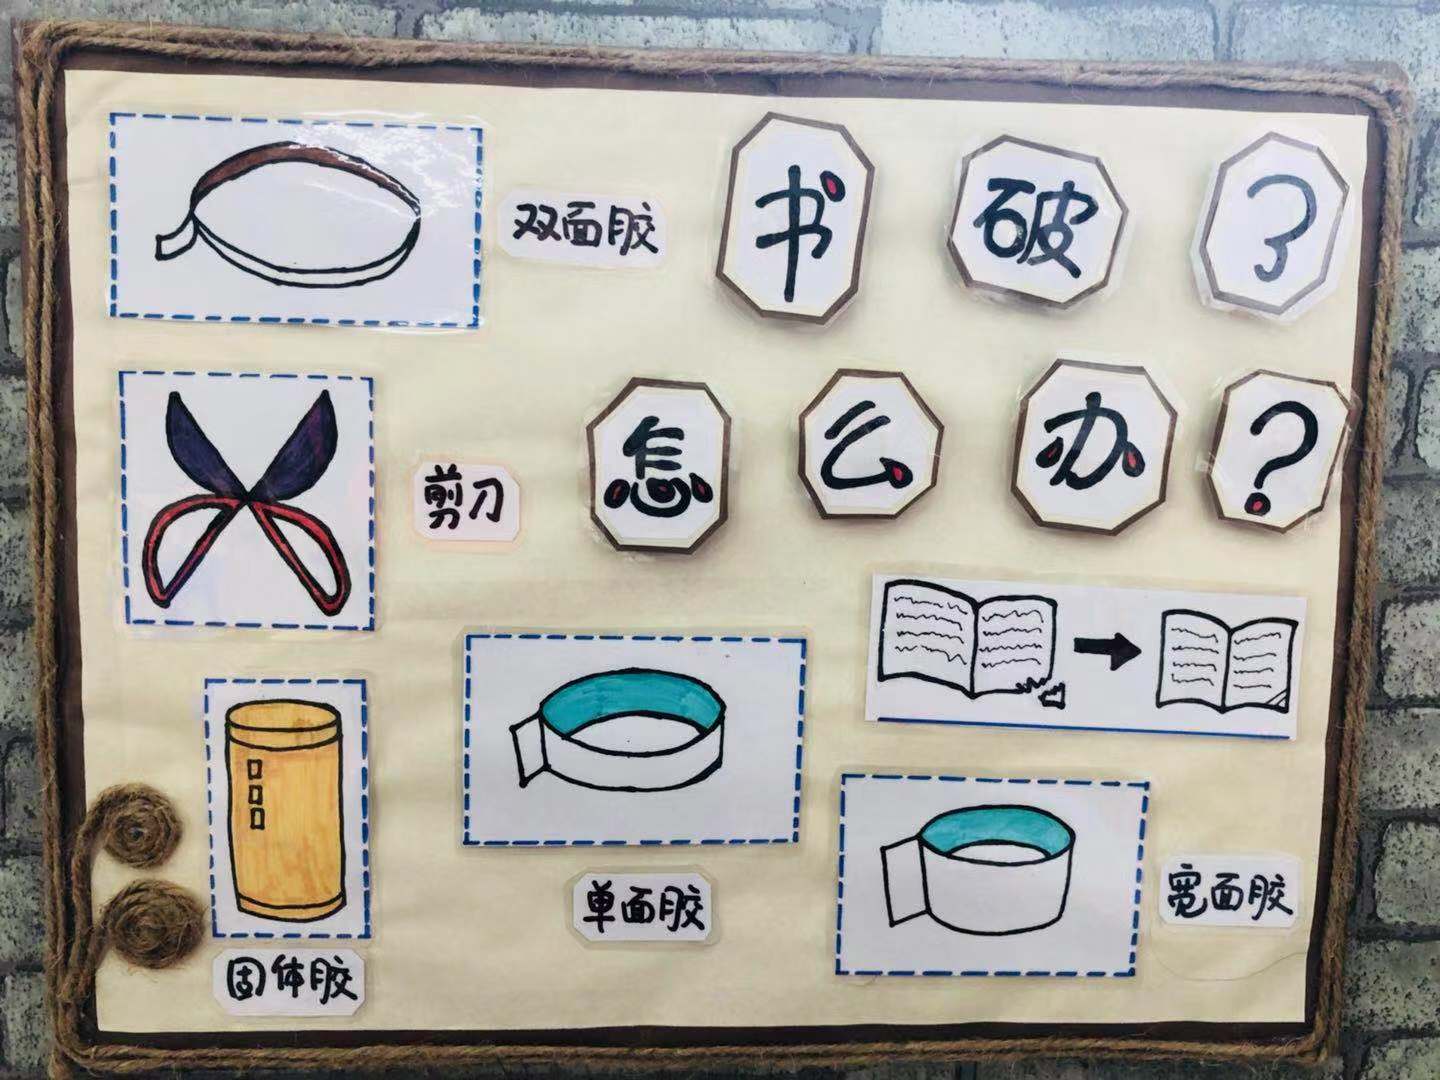 双面胶
书破了
怎么办?
剪刀
单面胶
宽面胶
固体胶